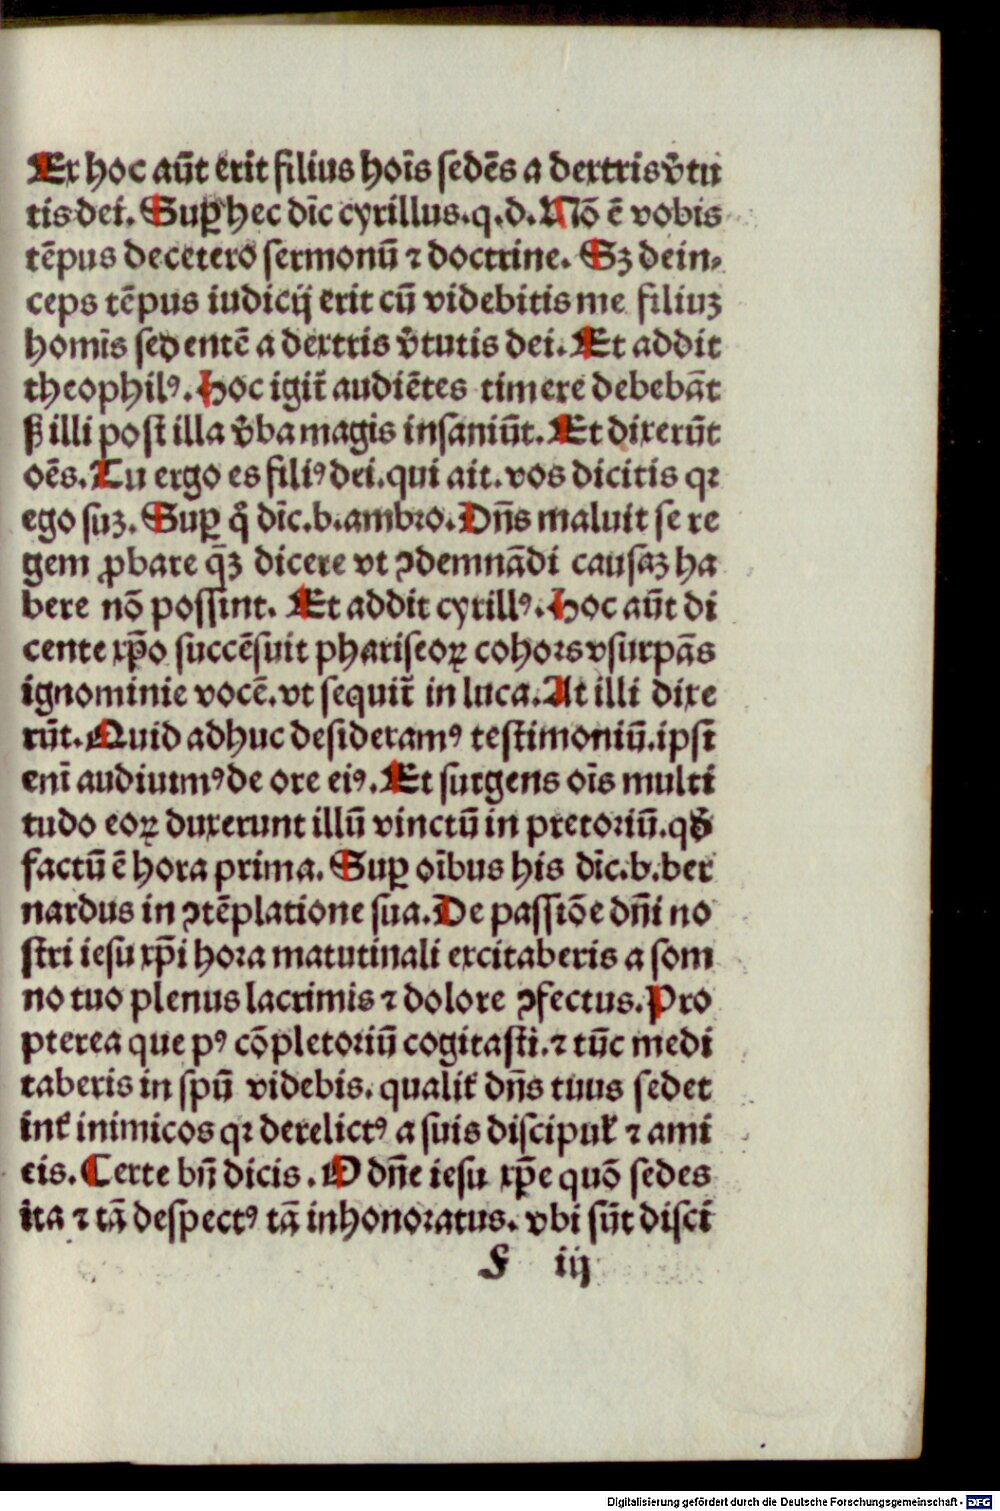 Ex hoc aūt erit filius hoīs sedēs a dextris v̄tu
tis dei. Suꝑ hec dīc cyrillus.q.d. Nō ē vobis
tēpus decetero sermonū ⁊ doctrine. Sꝫ dein⸗
ceps tēpus iudicij erit cū videbitis me filiuꝫ
homīs sedentē a dextris v̄tutis dei. Et addit
theophilꝰ. Hoc igit̄ audiētes timere debebāt
ß illi post illa v̄ba magis insaniūt. Et dixerūt
oēs. Tu ergo es filiꝰ dei. qui ait. vos dicitis qꝛ
ego suꝫ. Suꝑ q̄ dīc.b.ambꝛo. Dn̄s maluit se re
gem ꝓbare q̄ꝫ dicere vt ꝯdemnādi causaꝫ ha
bere nō possint. Et addit cyrillꝰ. Hoc aūt di
cente xp̄o succēsuit phariseoꝝ cohoꝛs vsurpās
ignominie vocē. vt sequit̄ in luca. At illi dixe
rūt. Quid adhuc desideramꝰ testimoniū. ipsi
eni᷒ audiuimꝰ de ore eiꝰ. Et surgens oīs multi
tudo eoꝝ duxerunt illū vinctū in pretoꝛiū. qd̄
factū ē hora prima. Suꝑ oībus his dīc.b.ber
nardus in ꝯtēplatione sua. De passiōe dn̄i no
stri iesu xp̄i hoꝛa matutinali excitaberis a som
no tuo plenus lacrimis ⁊ dolore ꝯfectus. Pro
pterea que pꝰ cōpletoꝛiū cogitasti.⁊ tūc medi
taberis in spū videbis. qualit̄ dn̄s tuus sedet
int̄ inimicos qꝛ derelictꝰ a suis discipul̄ ⁊ ami
cis. Certe bn̄ dicis. O dn̄e iesu xp̄e quō sedes
ita ⁊ tā despectꝰ tā inhonoꝛatus. vbi sūt disci
f iij
Digitalisierung gefördert durch die Deutsche Forschungsgemeinschaft - DFG